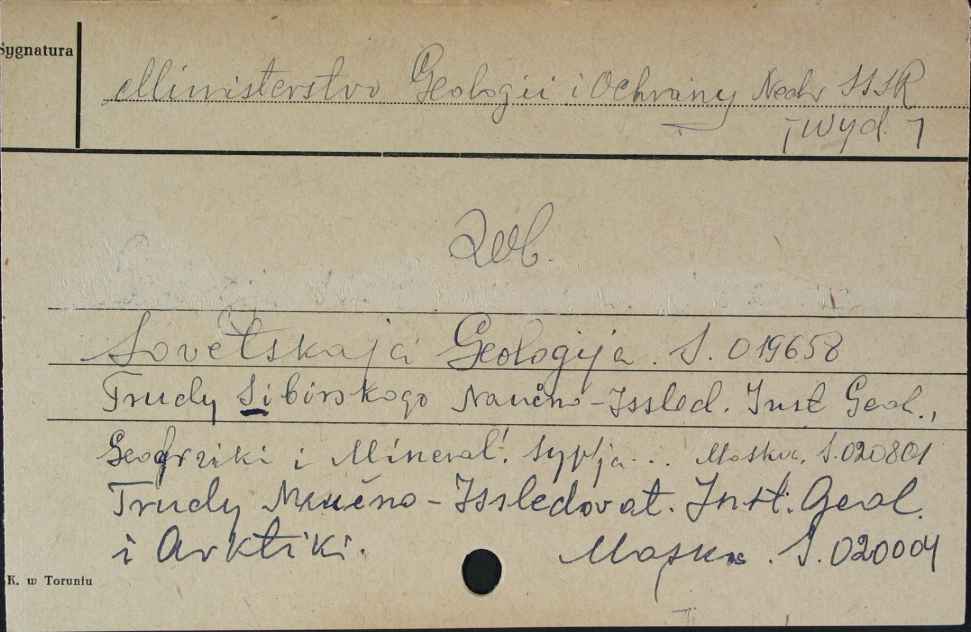 Sygnatura
Ministerstvo Geologii i Ochrany Nedr SSSR
[wyd.]
zob.
Sovetskaja Geologija. S. 019658
Trudy Sibirskogo Naučno-Issled. Inst Geol.,
Geofiziki i Mineral. Syr'ja... Moskva, S.020801
Trudy Naučno-Issledovat. Inst. Geol.
i Arktiki. Moskva. S.020004
K. w Toruniu